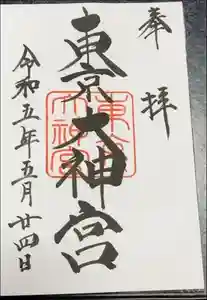 奉拝
東京大神宮
東京大神宮
令和五年五月廿四日